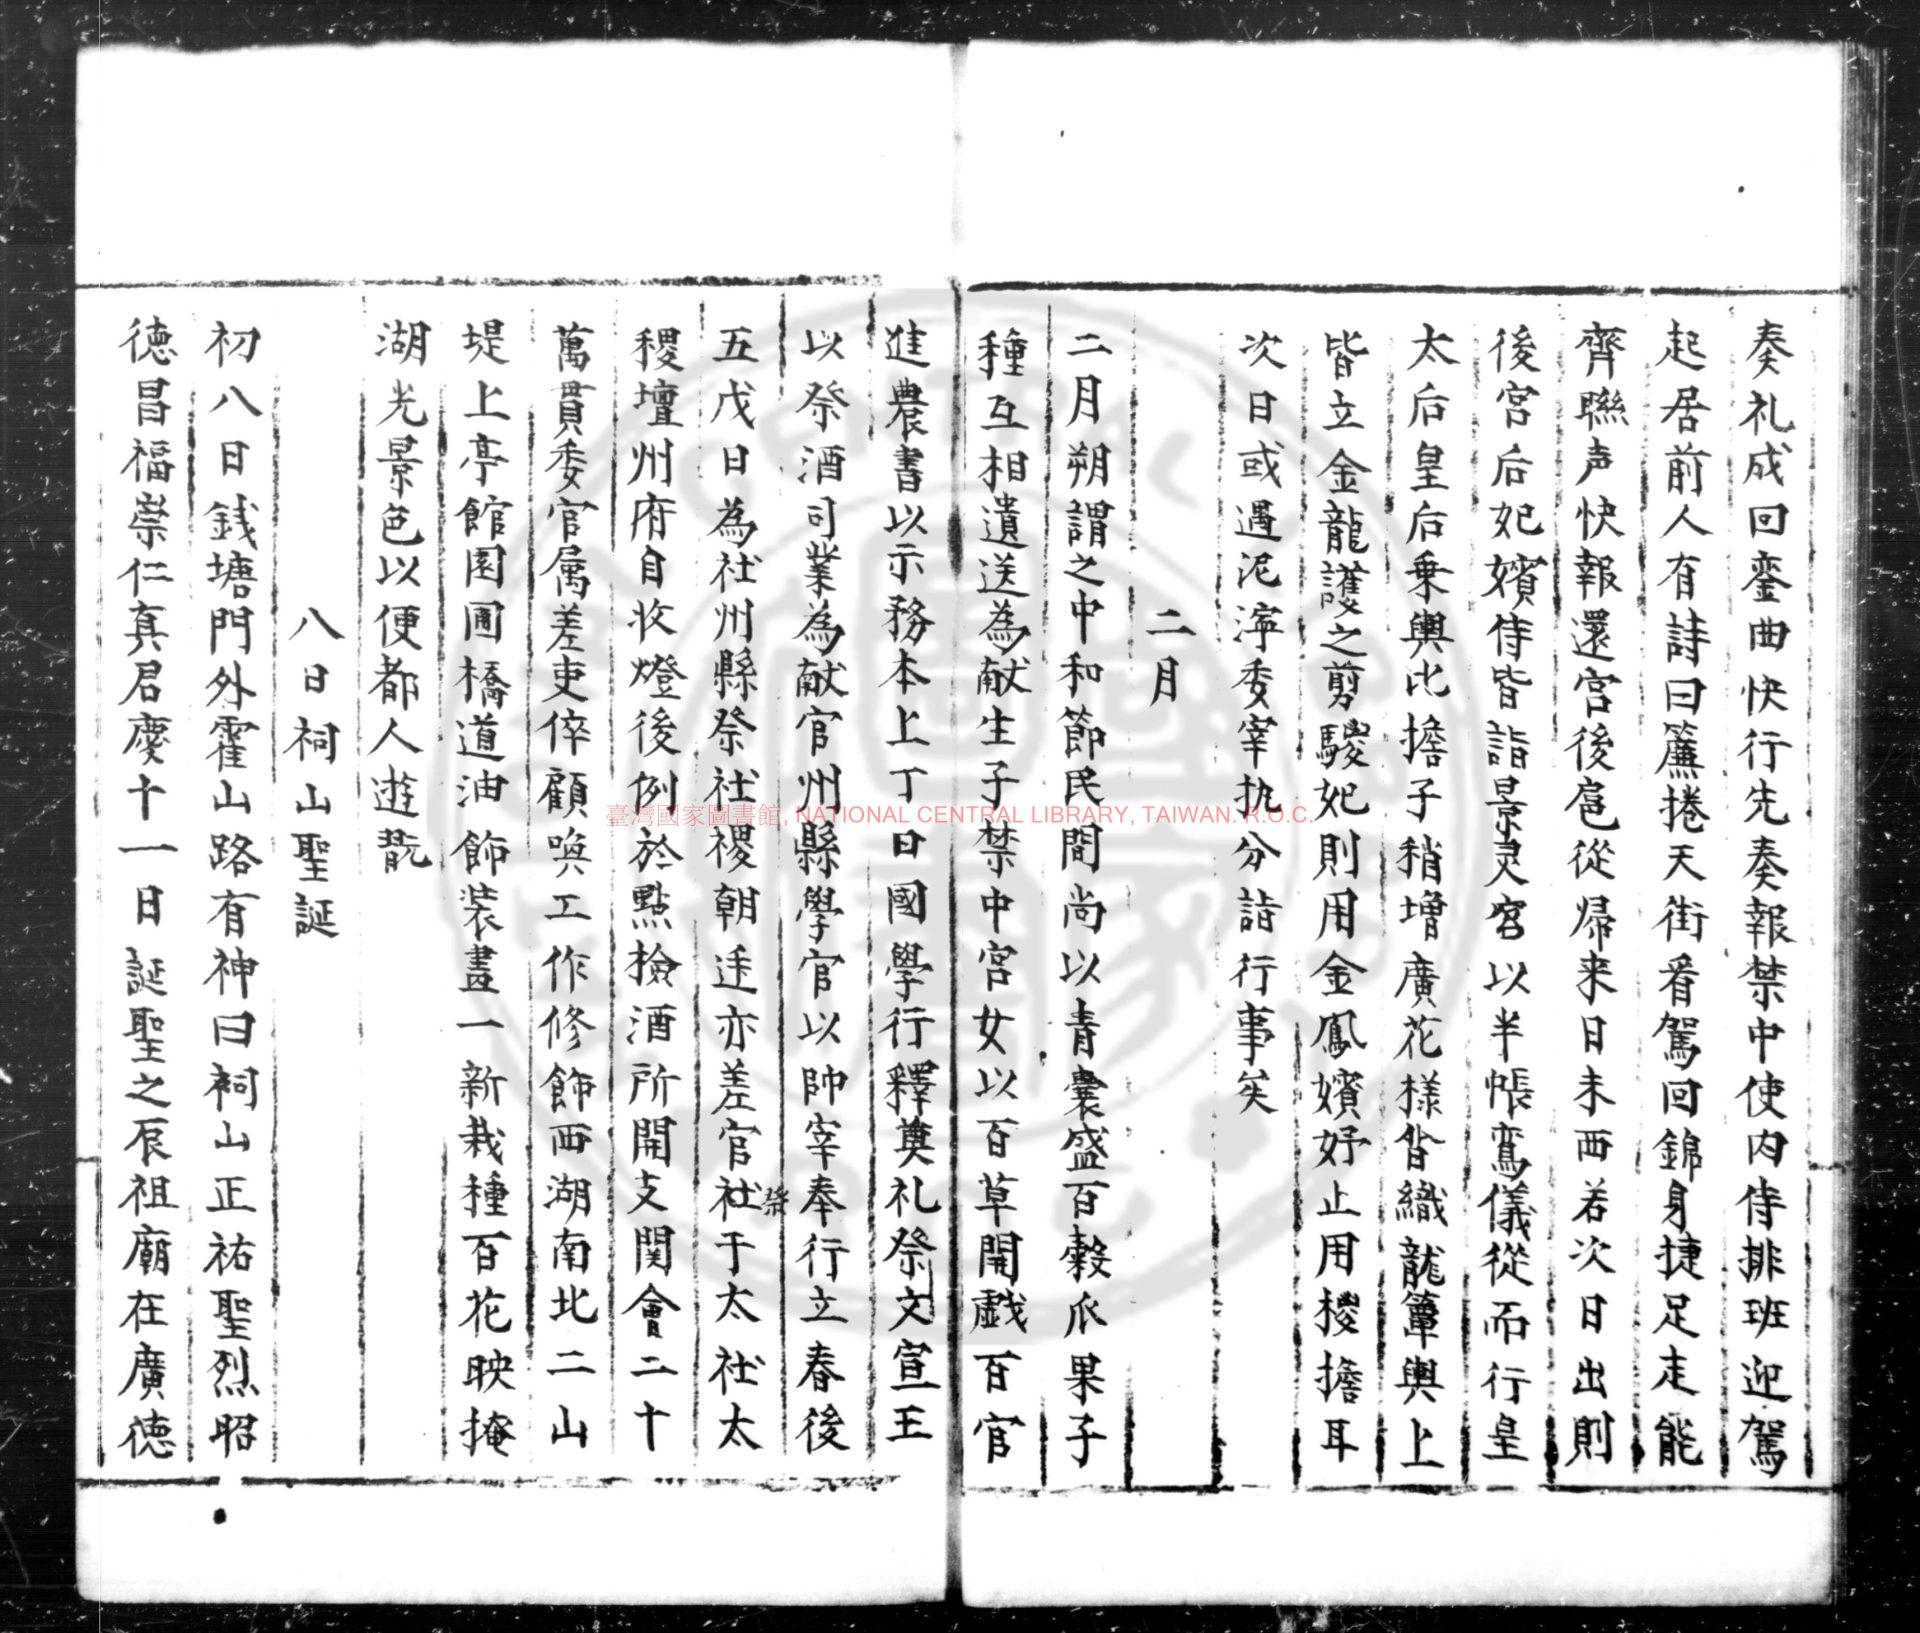 奏礼成回銮曲快行先奏報禁中使内侍排班迎駕
起居前人有詩曰簾捲天街看駕回錦身捷足走能
齊聯声快報還宮後扈從帰来日未西若次日出則
後宮后妃嬪侍皆詣景灵宮以半帳鸞儀從而行皇
太后皇后乗輿比擔子稍增廣花樣皆織龍簟輿上
皆立金龍護之剪騣妃則用金鳳嬪妤止用椶擔耳
次日或遇泥濘委宰执分詣行事矣
二月
二月朔謂之中和節民間尚以青囊盛百穀爪果子
種互相遺送為献生子禁中宮女以百草開戯百官
進農書以示務本上丁日國學行釋奠礼祭文宣王
以祭酒司業為献官州縣學官以帥宰奉行立春後
五戊日為社州縣祭社稷朝廷亦差官社祭于太社太
稷壇州府自收燈後例於點撿酒所開支関會二十
萬貫委官属差吏倅顧喚工作修飾西湖南北二山
堤上亭館園圃橋道油飾装畫一新栽種百花映掩
湖光景色以便都人遊翫
八日祠山聖誕
初八日銭塘門外霍山路有神曰祠山正祐聖烈昭
徳昌福崇仁真君慶十一日誕聖之辰祖廟在廣徳
臺灣國家圖書館, NATIONAL CENTRAL LIBRARY, TAIWAN. R.O.C.